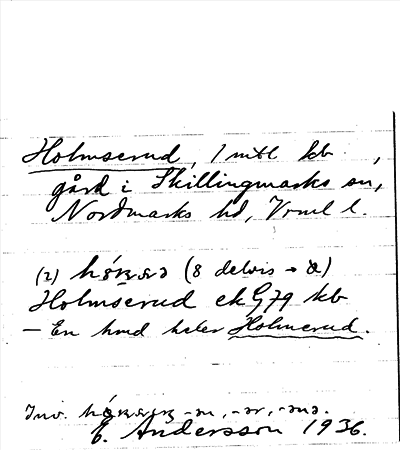 Holmserud, 1 mtl kb,
gård i Skillingmarks sn,
Nordmarks hd, Vrml l.
(2) (8 delvis → a)
Holmserud ek G79 kb
— En hmd heter Holmerud.
Inv. -ən, -ər, -əna.
E. Andersson 1936.